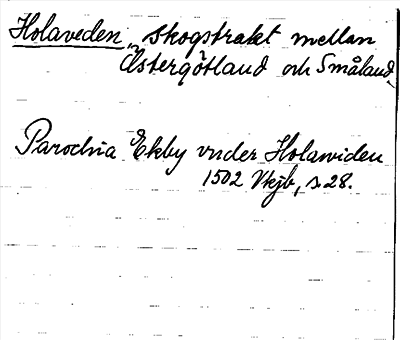 Holaveden, skogstrakt mellan
Östergötland och Småland.
Parochia Ekby vnder Holawiden
1502 Vkjb, s. 28.